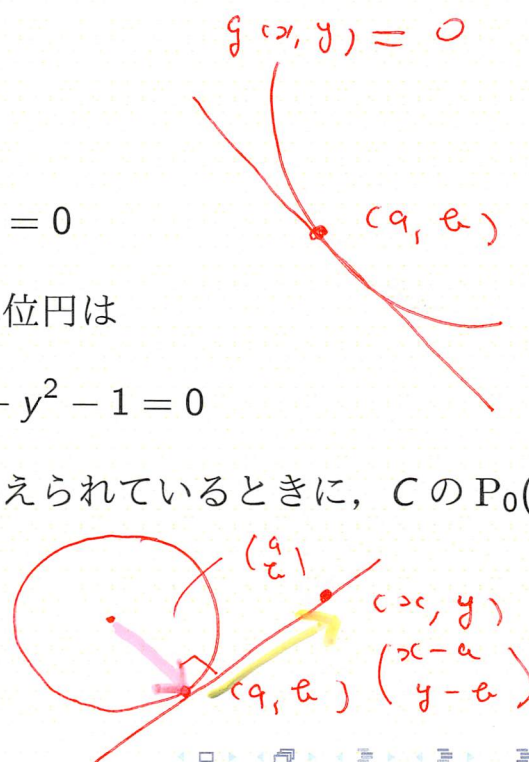 g(x, y) = 0
= 0
(a, b)
位円は
- y² - 1 = 0
えられているときに，CのP₀(
(a
b)
(x, y)
(a, b)
(x-a
y-b)